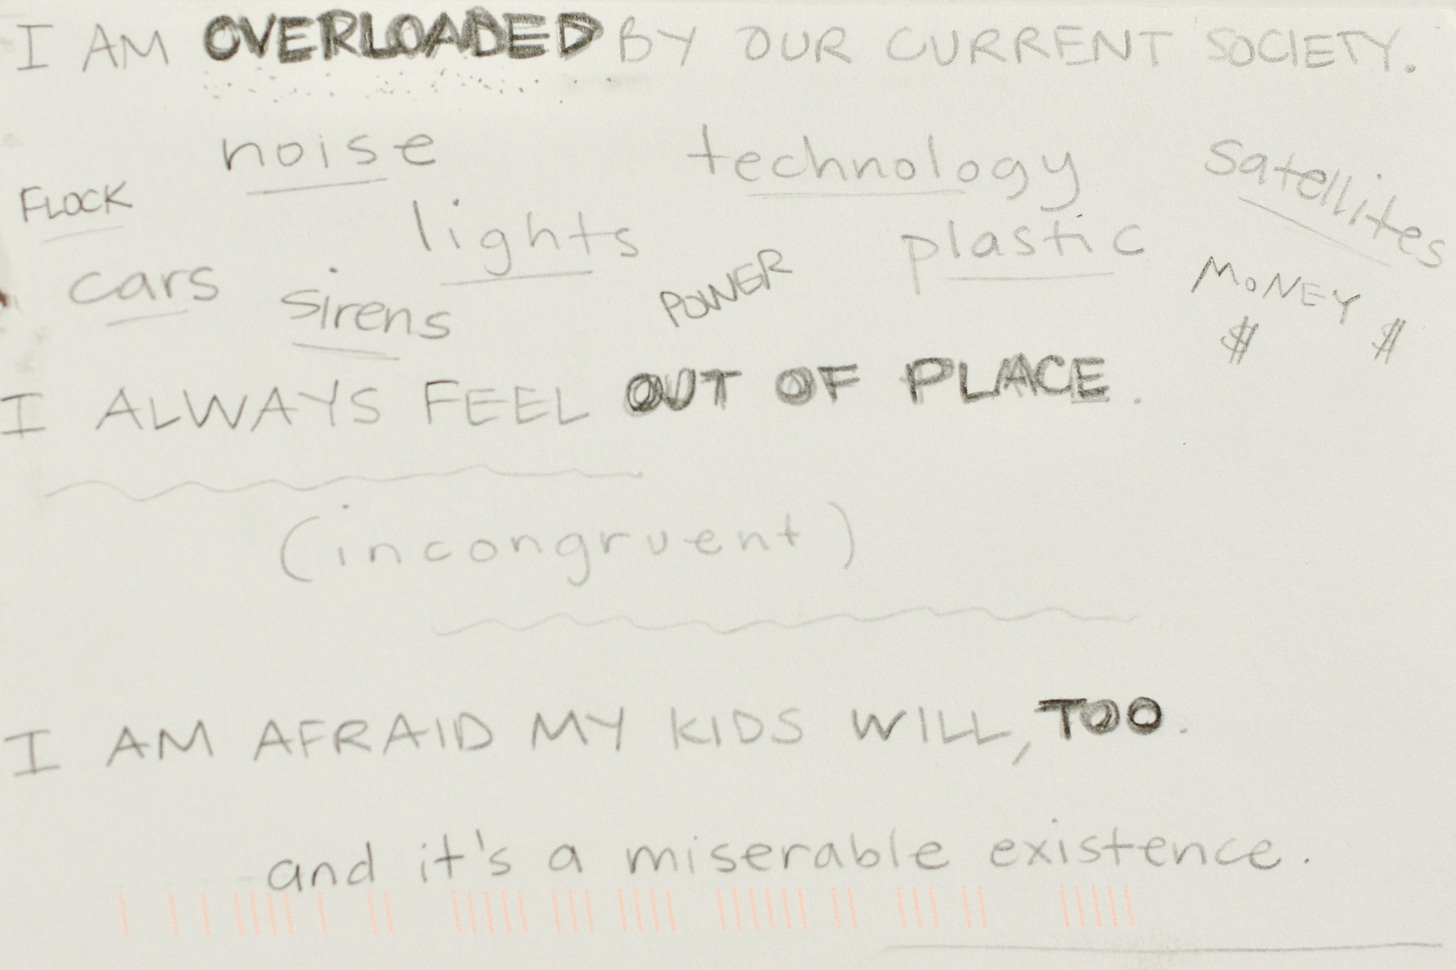 I AM OVERLOADED BY OUR CURRENT SOCIETY.
noise technology satellites
FLOCK lights plastic
cars sirens POWER MONEY
$ $
I ALWAYS FEEL OUT OF PLACE.
(incongruent)
I AM AFRAID MY KIDS WILL, TOO.
and it's a miserable existence.